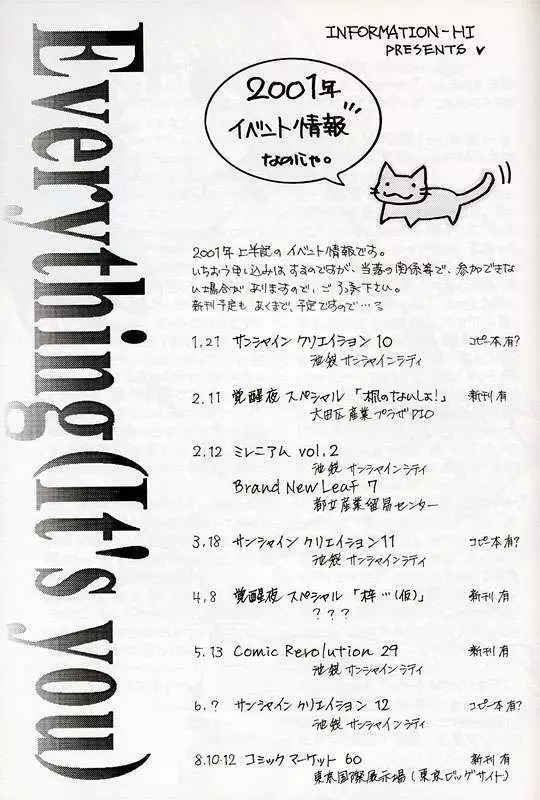 Everything(It's you)
INFORMATION-HI
PRESENTS ♥
2001年
イベント情報
なのじゃ。
2001年上半記のイベント情報です。
いちおう申し込みは、するのですが、当落の関係等で、参加できな
い場合がありますので、ご了承下さい。
新刊予定も あくまで、予定ですので…
1.21 サンシャイン クリエイション 10 コピー本有?
池袋 サンシャインシティ
2.11 覚醒夜 スペシャル「楓のないしょ!」 新刊有
大田区産業プラザPIO
2.12 ミレニアム vol.2
池袋 サンシャインシティ
Brand New Leaf 7
都立産業貿易センター
3.18 サンシャイン クリエイション11 コピー本有?
池袋 サンシャインシティ
4.8 覚醒夜 スペシャル「梓…(仮)」 新刊有
???
5.13 Comic Revolution 29 新刊有
池袋 サンシャインシティ
6.? サンシャイン クリエイション 12 コピー本有?
池袋 サンシャインシティ
8.10.12 コミックマーケット 60 新刊有
東京国際展示場(東京ビッグサイト)